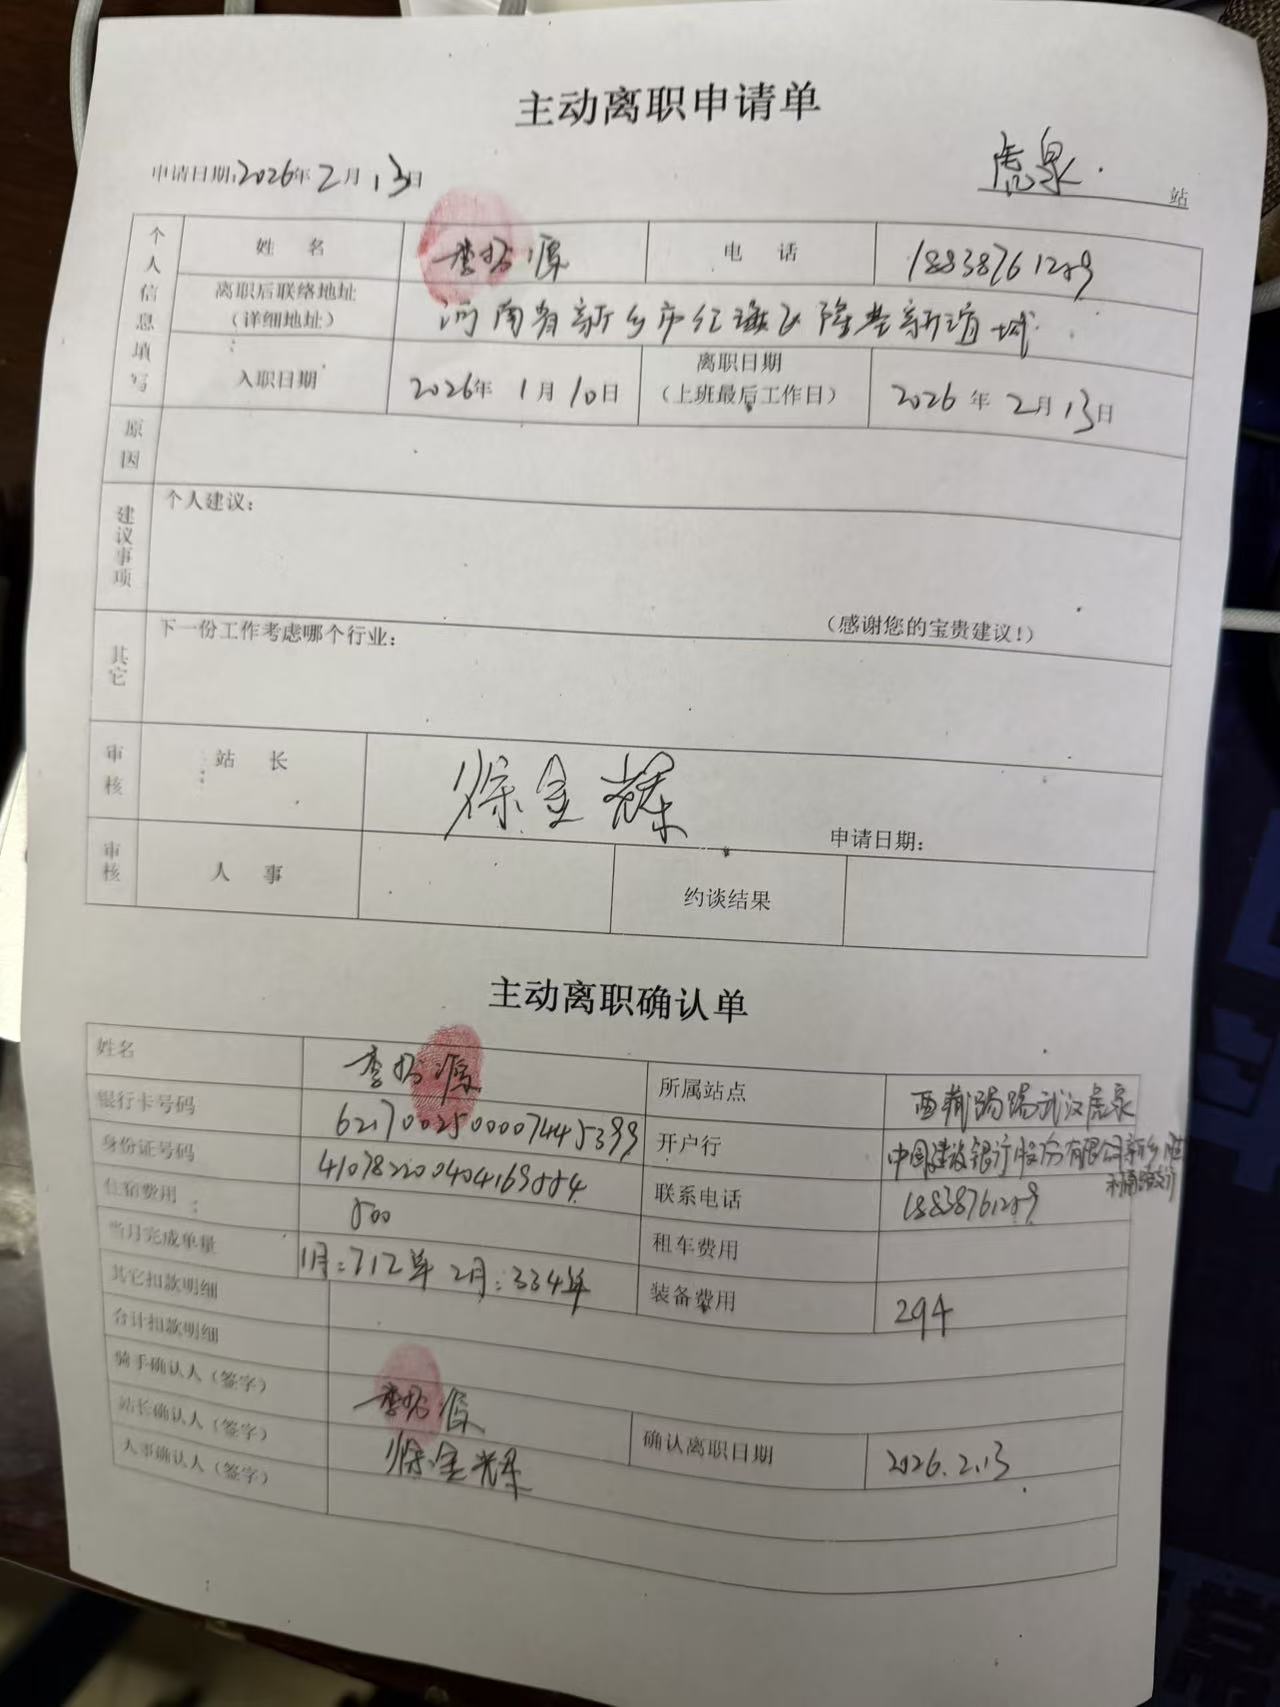 主动离职申请单
申请日期:2026年2月13日
虎泉 站
个人信息填写
姓 名 李 源 电 话 18838761259
离职后联络地址
(详细地址)
河南省新乡市红旗区隆基新谊城
入职日期 2026年 1月10日
离职日期
(上班最后工作日)
2026年 2月13日
原因
建议事项
个人建议:
(感谢您的宝贵建议!)
其它
下一份工作考虑哪个行业:
审核 站 长 徐金辉
申请日期:
审核 人 事 约谈结果
主动离职确认单
姓名 李 源 所属站点 西藏踢踢武汉虎泉
银行卡号码 6217002500007445399 开户行 中国建设银行股份有限公司新乡
身份证号码 联系电话 18838761259
住宿费用 500 租车费用
当月完成单量 1月:712单 2月:334单 装备费用 294
其它扣款明细
合计扣款明细
骑手确认人(签字) 李 源
站长确认人(签字) 徐金辉 确认离职日期 2026.2.13
人事确认人(签字)